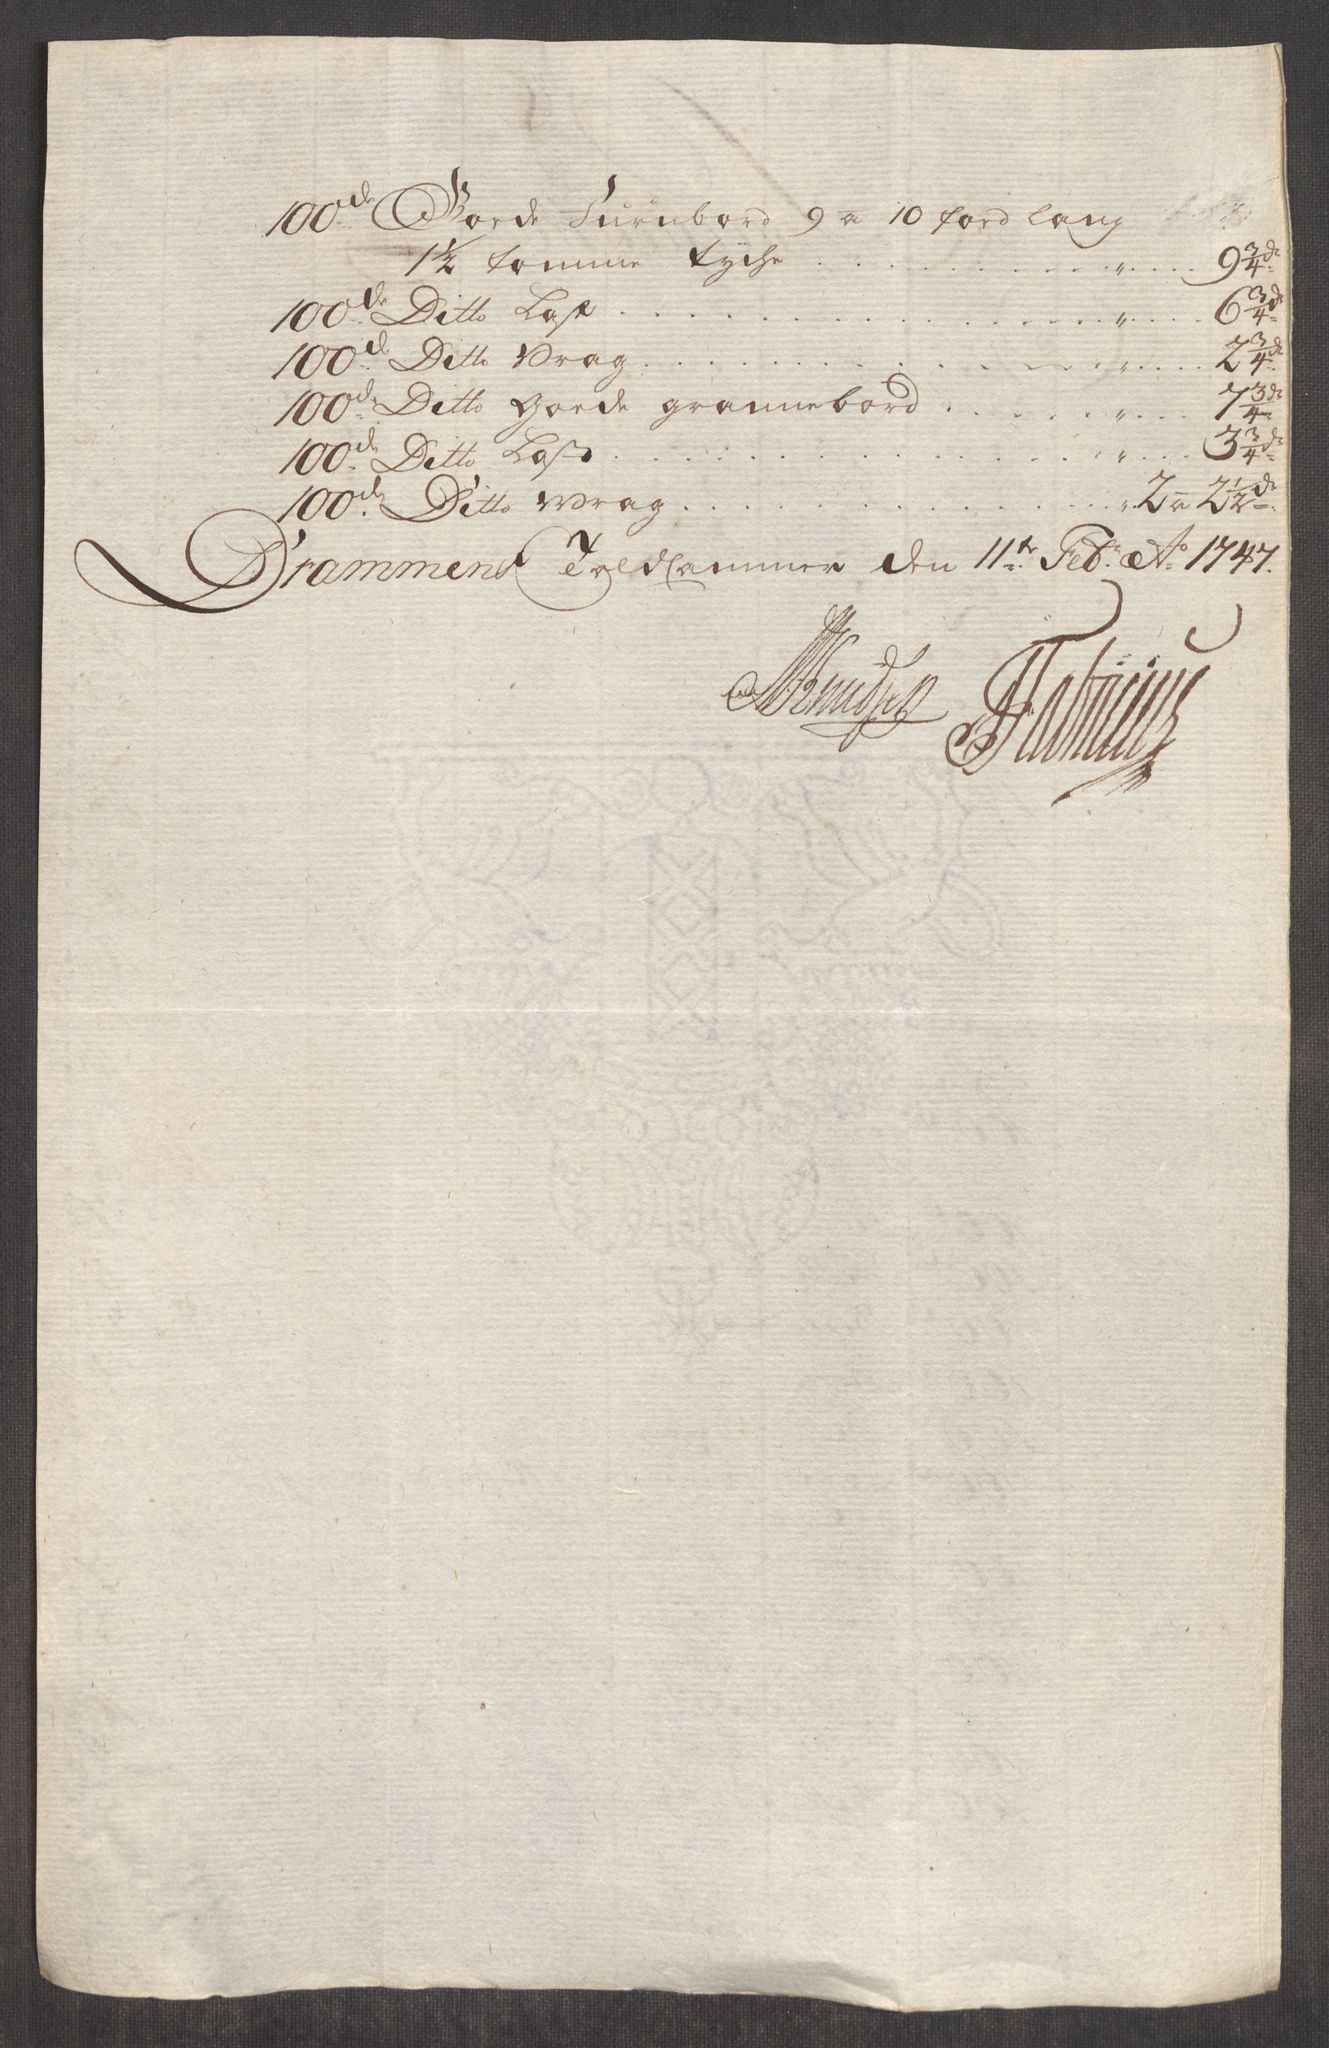 100de Goede Furubord 9 a 10 foed lang
1½ tomme tyche . . . . . . . . . . " . . . . 9¾ dr
100de Ditto Last . . . . . . . . . . " . . . . 6¾ dr
100de Ditto Vrag . . . . . . . . . . " . . . . 2¾ dr
100de Ditto goede grannebord . . . . . . " . . . . 7¾ dr
100de Ditto Last . . . . . . . . . . " . . . . 3¾ dr
100de Ditto Vrag . . . . . . . . . . " 2 a 2½ dr
Drammens Toldcammer den 11te Feb: Ao 1747.
Knudsen Fabricius